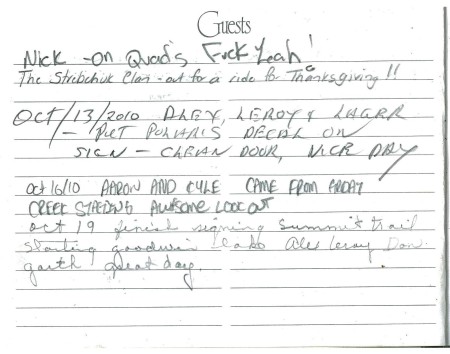 Guests
Nick - on Quad's Fuck Yeah!
The Strebchuk Clan - out for a ride for Thanksgiving!!
OCT/13/2010 ALEX, LEROY & LAGRR
- PUT POLARIS DECAL ON
SIGN - CLEAN DOOR, NICE DAY
Oct 16/10 AARON AND KYLE CAME FROM GREAT
CREEK STAEDING AWESOME LOOK OUT
oct 19 finish signing Summit trail
starting goodwin Alex leroy Don
garth great day.